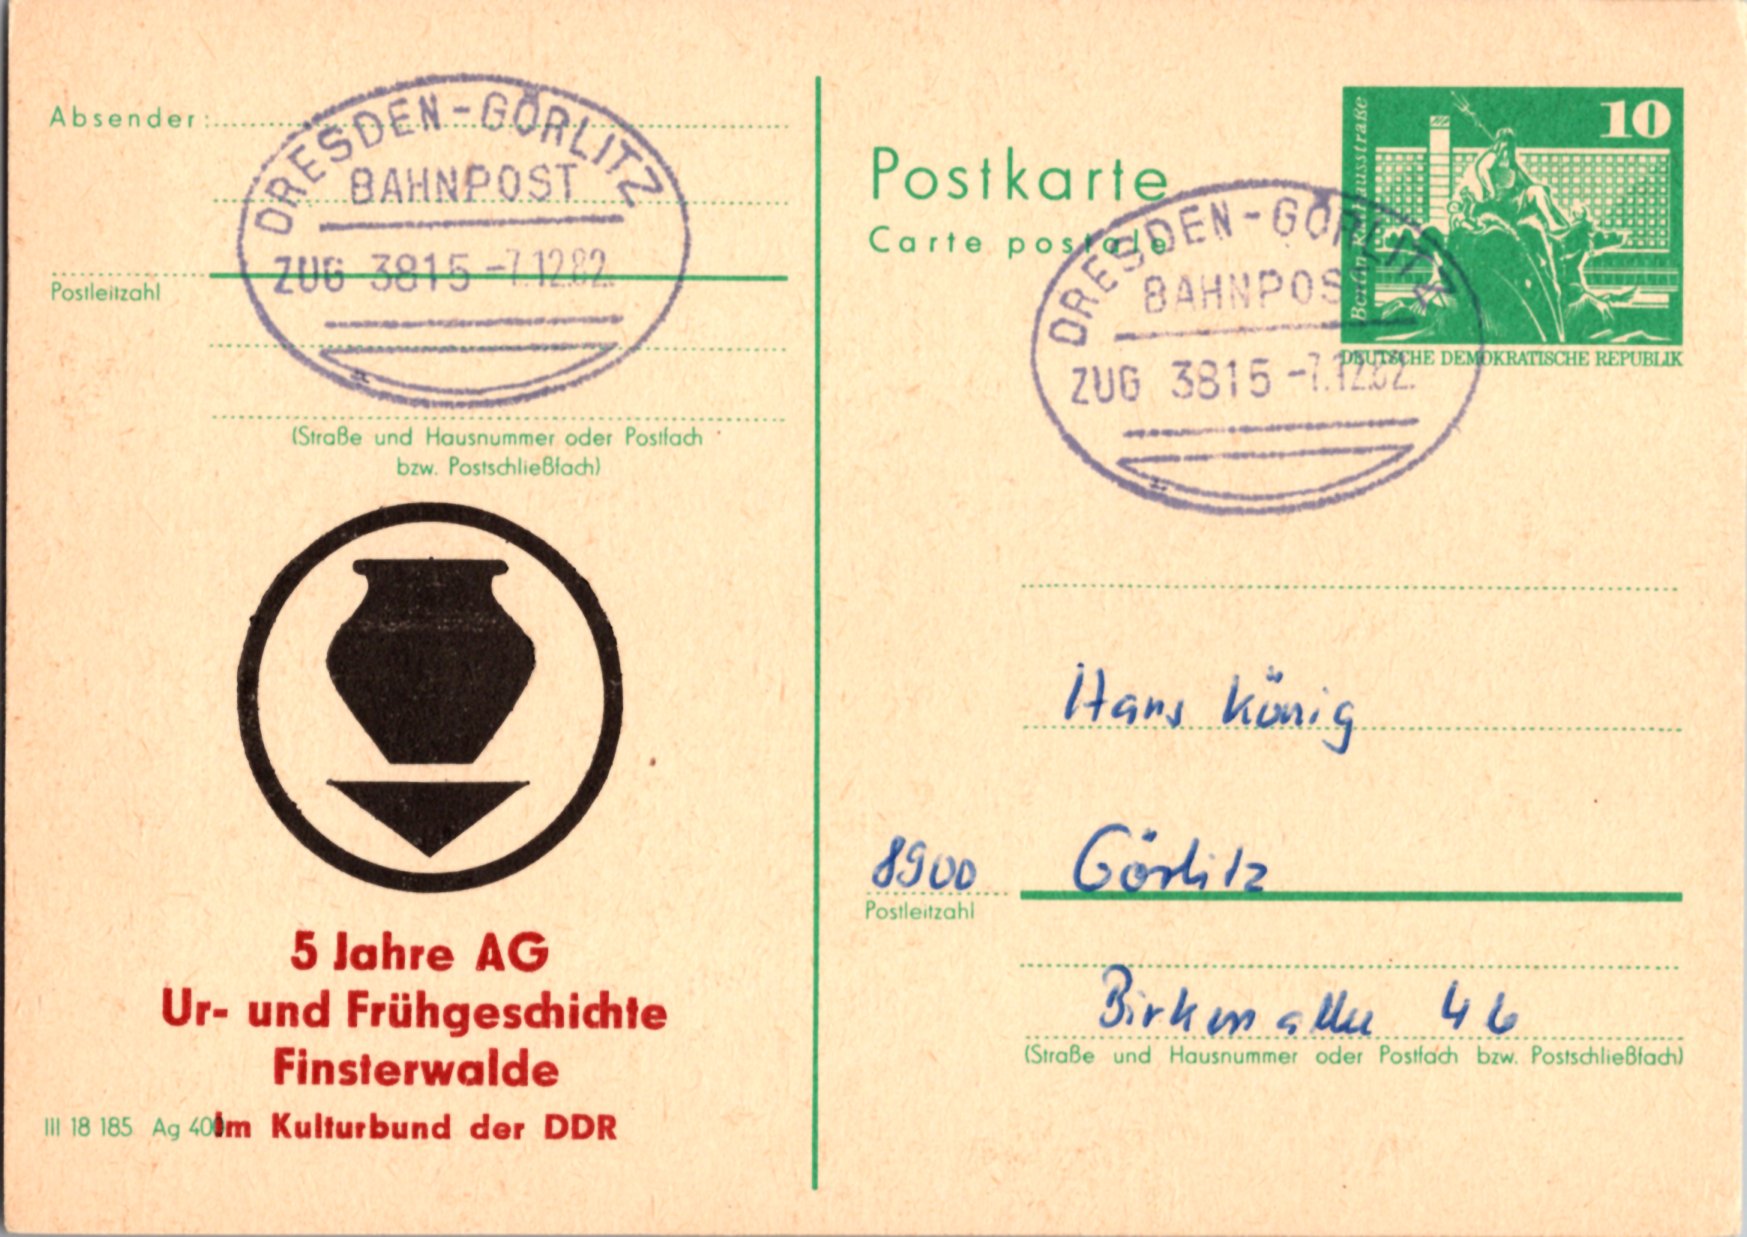 Absender:
DRESDEN-GÖRLITZ
BAHNPOST
ZUG 3815 -7.12.82.
Postleitzahl
(Straße und Hausnummer oder Postfach
bzw. Postschließfach)
5 Jahre AG
Ur- und Frühgeschichte
Finsterwalde
Im Kulturbund der DDR
III 18 185 Ag 400
Postkarte
Carte postale
10
DEUTSCHE DEMOKRATISCHE REPUBLIK
DRESDEN-GÖRLITZ
BAHNPOST
ZUG 3815 -7.12.82.
Hans König
8900 Görlitz
Postleitzahl
Birkenallee 46
(Straße und Hausnummer oder Postfach bzw. Postschließfach)